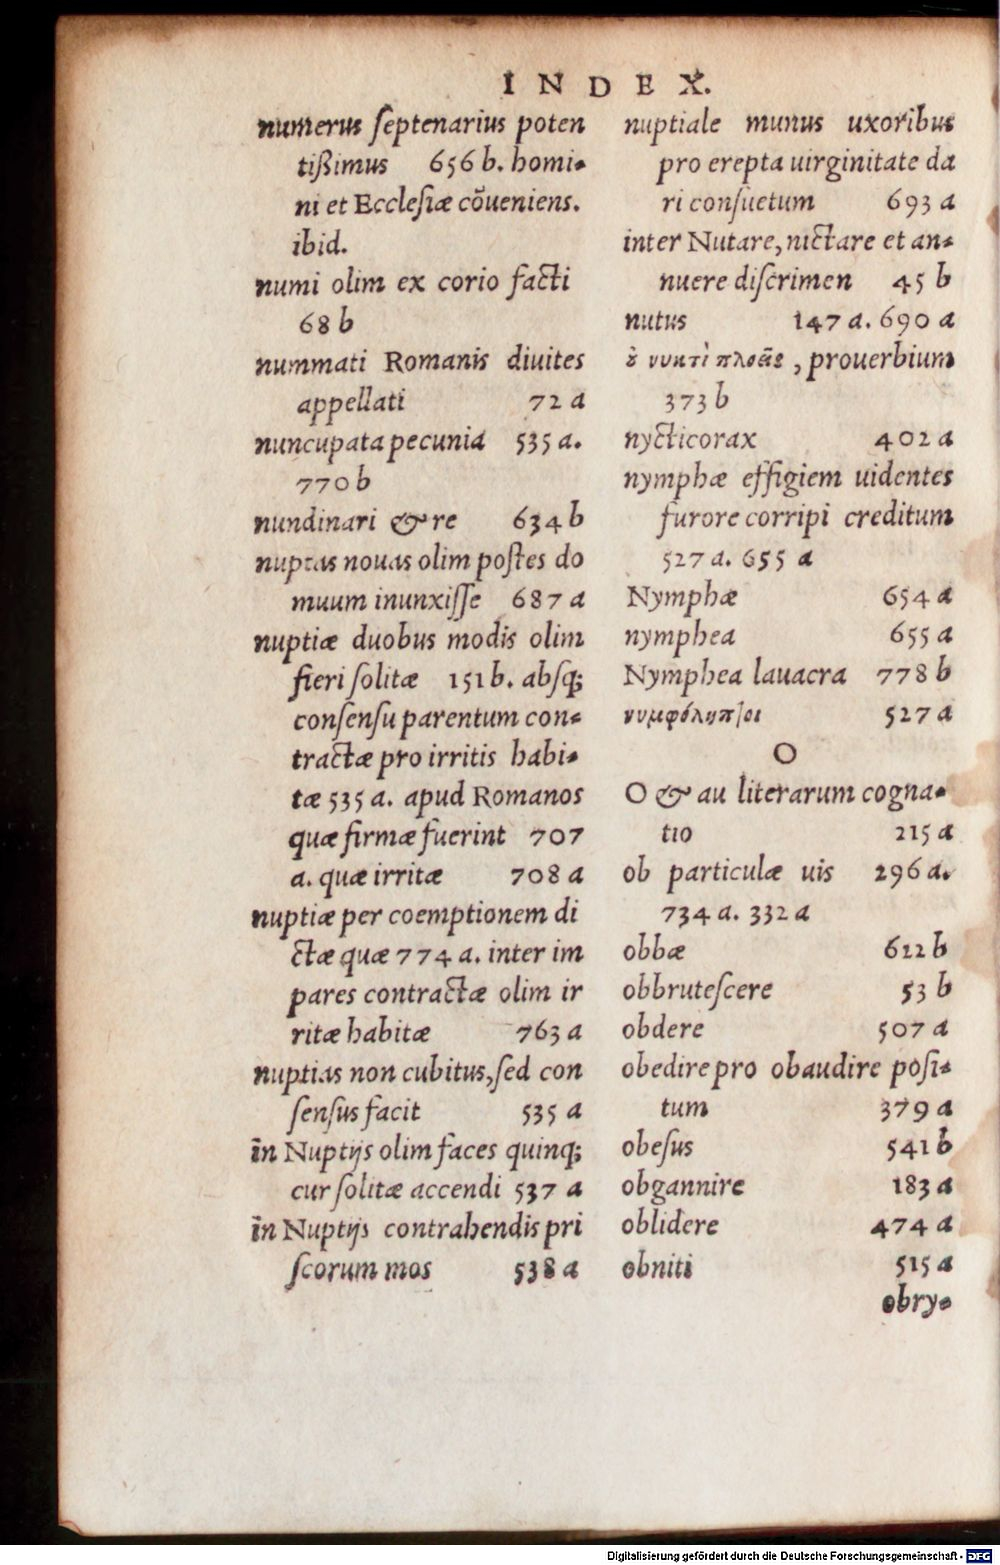 INDEX.
numerus ſeptenarius poten
tißimus 656 b. homi-
ni et Eccleſiæ cōueniens.
ibid.
numi olim ex corio facti
68 b
nummati Romanis diuites
appellati 72 a
nuncupata pecunia 535 a.
770 b
nundinari & re 634 b
nuptas nouas olim poſtes do
muum inunxiſſe 687 a
nuptiæ duobus modis olim
fieri ſolitæ 151 b. abſq;
conſenſu parentum con-
tractæ pro irritis habi-
tæ 535 a. apud Romanos
quæ firmæ fuerint 707
a. quæ irritæ 708 a
nuptiæ per coemptionem di
ctæ quæ 774 a. inter im
pares contractæ olim ir
ritæ habitæ 763 a
nuptias non cubitus, ſed con
ſenſus facit 535 a
in Nuptijs olim faces quinq;
cur ſolitæ accendi 537 a
in Nuptijs contrahendis pri
ſcorum mos 538 a
nuptiale munus uxoribus
pro erepta uirginitate da
ri conſuetum 693 a
inter Nutare, nictare et an-
nuere diſcrimen 45 b
nutus 147 a. 690 a
νυκτὶ πλοᾶς, prouerbium
373 b
nycticorax 402 a
nymphæ effigiem uidentes
furore corripi creditum
527 a. 655 a
Nymphæ 654 a
nymphea 655 a
Nymphea lauacra 778 b
νυμφόληπτοι 527 a
O
O & au literarum cogna-
tio 215 a
ob particulæ uis 296 a.
734 a. 332 a
obbæ 622 b
obbruteſcere 53 b
obdere 507 a
obedire pro obaudire poſi-
tum 379 a
obeſus 541 b
obgannire 183 a
oblidere 474 a
obniti 515 a
obry-
Digitalisierung gefördert durch die Deutsche Forschungsgemeinschaft - DFG